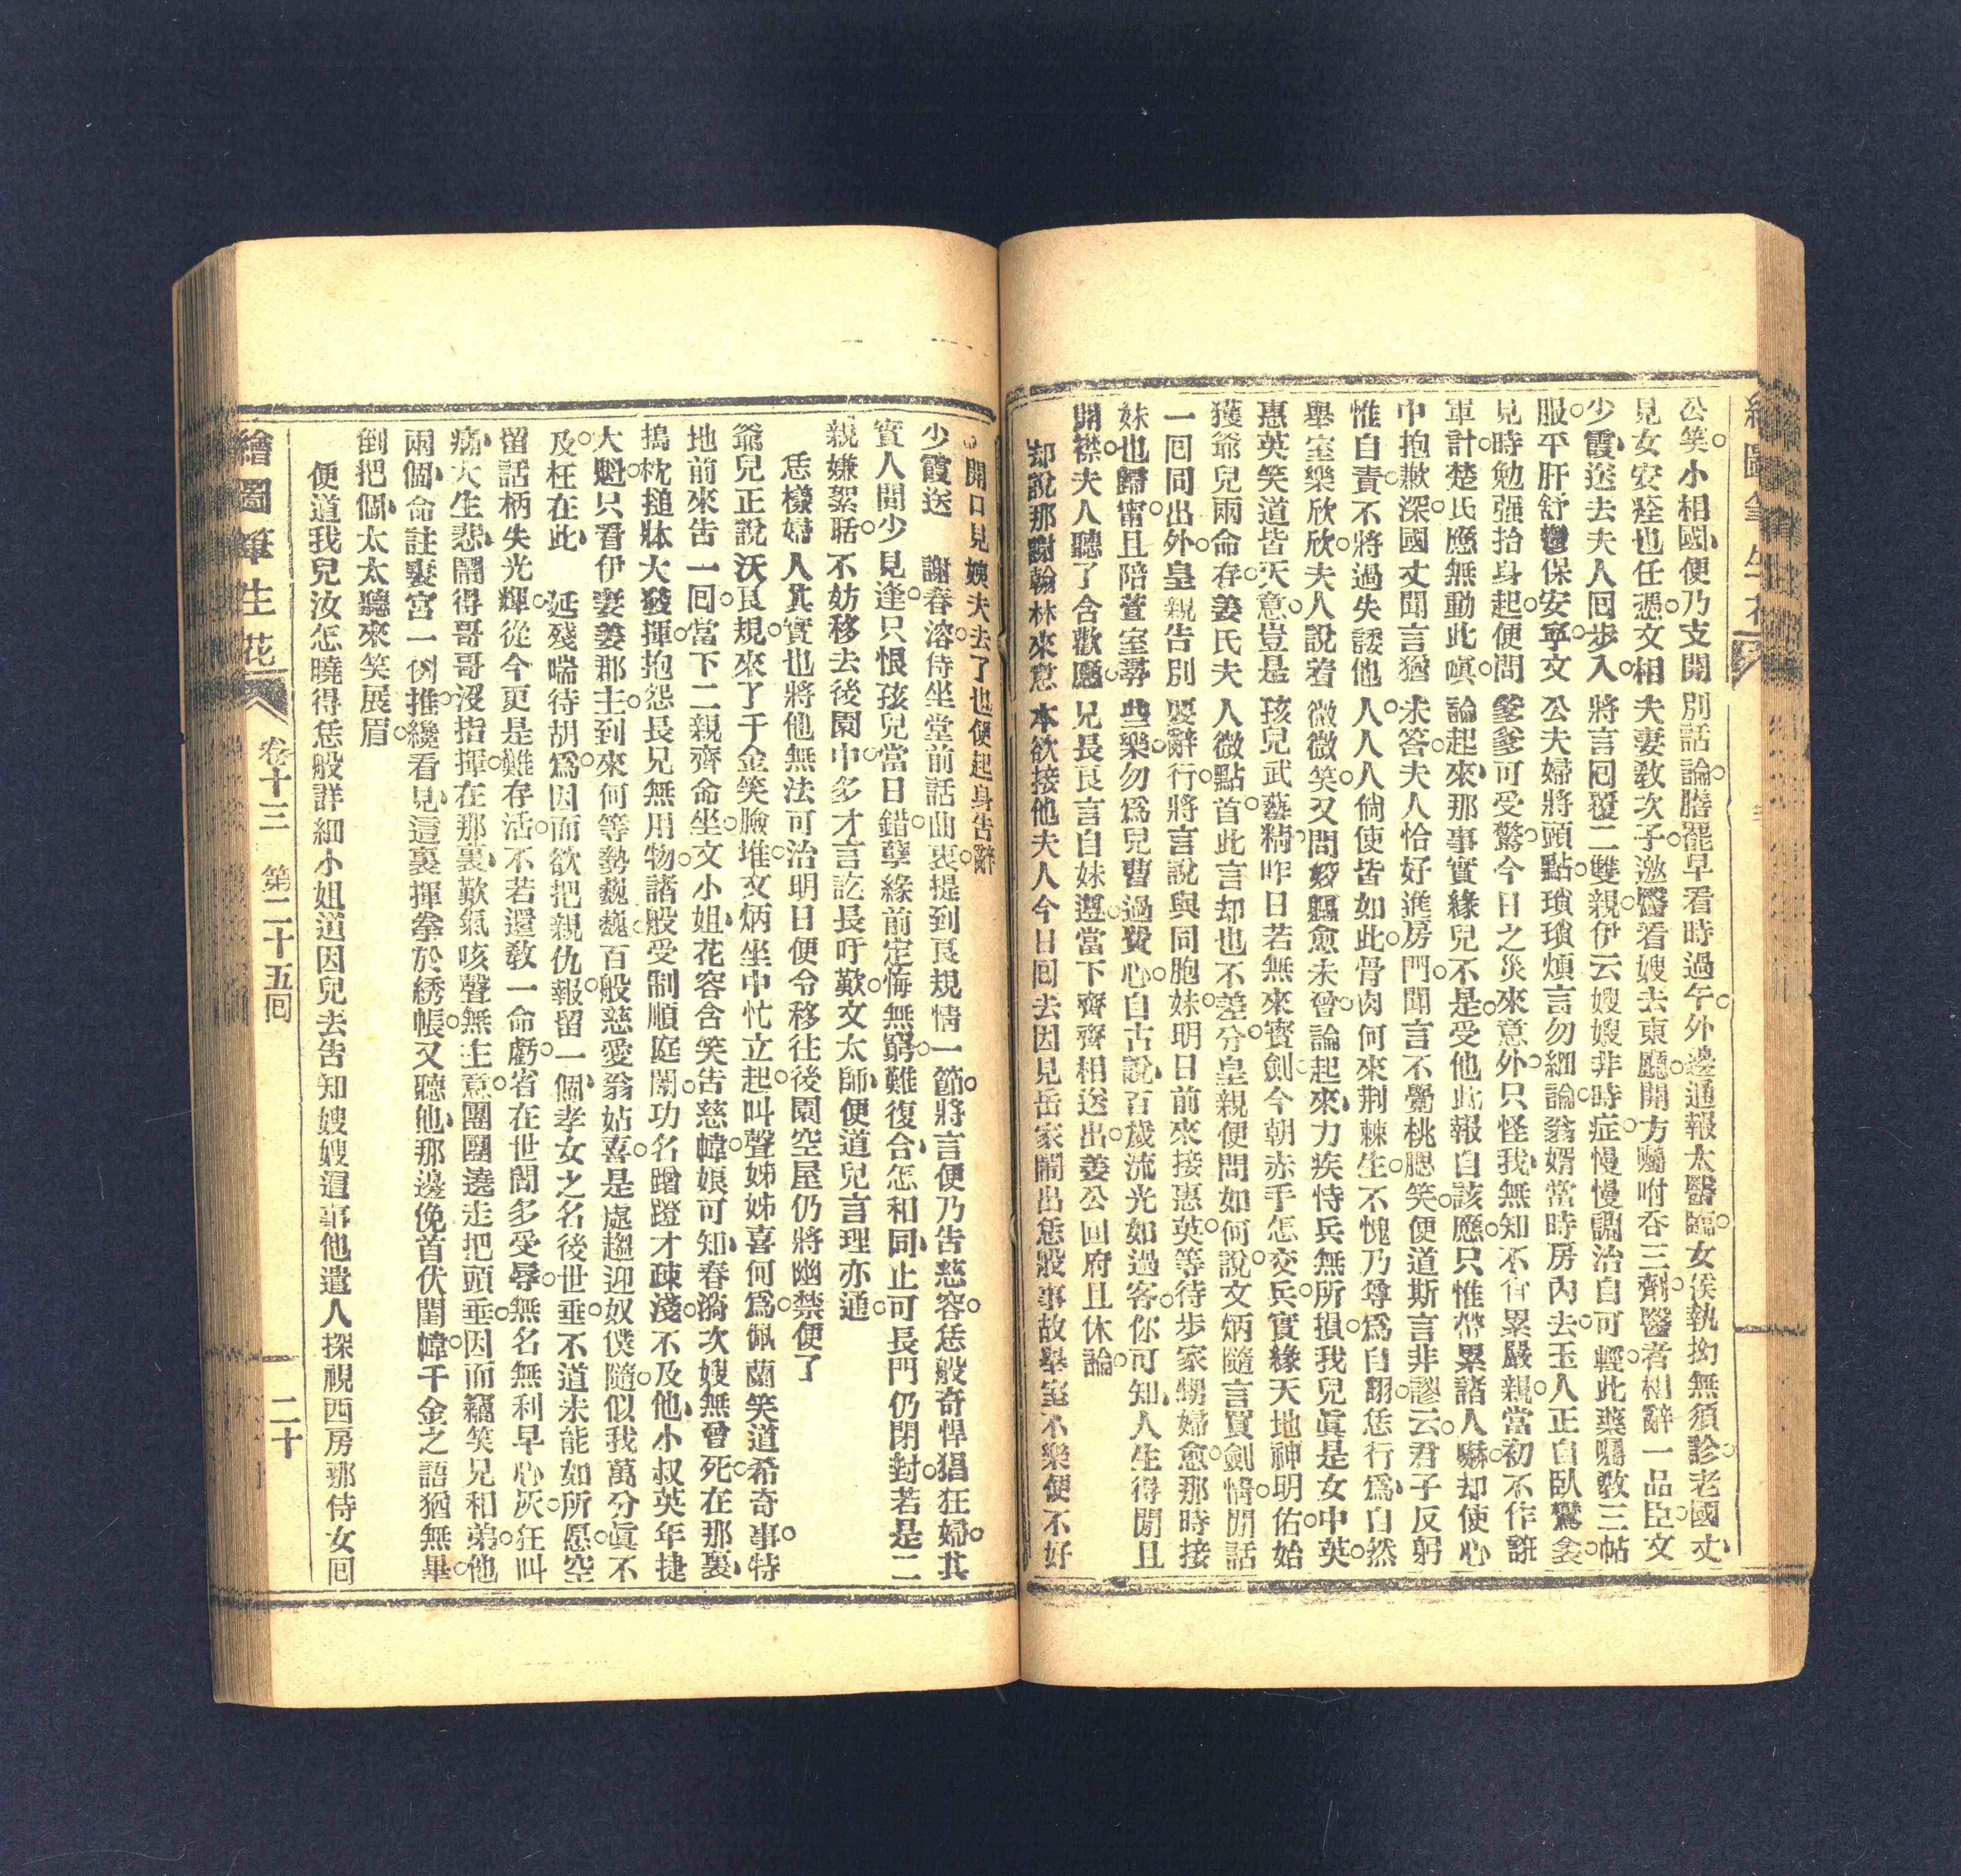 公笑小相國便乃支開別話論膳罷早看時過午外邊通報太醫臨女侯執拗無須診老國丈
見女安痊也任憑文相夫妻教次子邀醫看嫂去東廳開方囑咐吞三劑醫者相辭一品臣文
少霞送去夫人回步入將言回覆二雙親伊云嫂嫂非時症慢慢調治自可輕此藥囑教三帖
服平肝舒鬱保安寧文公夫婦將頭點瑣瑣煩言勿細論翁婿當時房內去玉人正自臥鸞衾
見時勉强抬身起便問爹爹可受驚今日之災來意外只怪我無知不肖累嚴親當初不作誑
軍計楚氏應無動此嗔論起來那事實緣兒不是受他此報自該應只惟帶累諸人嚇却使心
中抱歉深國丈聞言猶未答夫人恰好進房門聞言不覺桃腮笑便道斯言非謬云君子反躬
惟自責不將過失諉他人人人倘使皆如此骨肉何來荆棘生不愧乃尊爲自翮恁行爲自然
舉室樂欣欣夫人說着微微笑又問嬌軀愈未曾論起來力疾恃兵無所損我兒眞是女中英
惠英笑道皆天意豈是孩兒武藝精昨日若無來寳劍今朝赤手怎交兵實緣天地神明佑始
獲爺兒兩命存姜氏夫人微點首此言却也不差分皇親便問如何說文炳隨言買劍情閒話
一回同出外皇親告別要辭行將言說與同胞妹明日前來接惠英等待步家甥婦愈那時接
妹也歸甯且陪萱室尋些樂勿爲兒曹過費心自古說百歲流光如過客你可知人生得閒且
開襟夫人聽了含歡應兄長良言自妹遵當下齊齊相送出姜公回府且休論
却說那謝翰林來意本欲接他夫人今日回去因見岳家鬧出恁般事故舉室不樂便不好
開口見姨夫去了也便起身告辭
少霞送 謝春溶侍坐堂前話曲衷提到良規情一節將言便乃告慈容恁般奇悍猖狂婦其
實人間少見逢只恨孩兒當日錯孽緣前定悔無窮難復合怎和同止可長門仍閉封若是二
親嫌絮聒不妨移去後園中多才言訖長吁歎文太師便道兒言理亦通
恁樣婦人其實也將他無法可治明日便令移往後園空屋仍將幽禁便了
爺兒正說沃良規來了千金笑臉堆文炳坐中忙立起叫聲姊姊喜何爲佩蘭笑道希奇事特
地前來告一回當下二親齊命坐文小姐花容含笑告慈幃娘可知春漪次嫂無曾死在那裏
搗枕搥牀大發揮抱怨長兄無用物諸般受制順庭闈功名蹭蹬才疎淺不及他小叔英年捷
大魁只看伊妻姜郡主到來何等勢巍巍百般慈愛翁姑喜是處趨迎奴僕隨似我萬分眞不
及枉在此 延殘喘待胡爲因而欲把親仇報留一個孝女之名後世垂不道未能如所愿空
留話柄失光輝從今更是難存活不若還教一命虧省在世間多受辱無名無利早心灰狂叫
痛大生悲鬧得哥哥沒指揮在那裏歎氣咳聲無主意團團遶走把頭垂因而竊笑兄和弟他
兩個命註妻宮一例推纔看見這裏揮拳於綉帳又聽他那邊俛首伏閨幃千金之語猶無畢
倒把個太太聽來笑展眉
便道我兒汝怎曉得恁般詳細小姐道因兒去告知嫂嫂這事他遣人探視西房那侍女回
繪圖筆生花 卷十三 第二十五回 二十